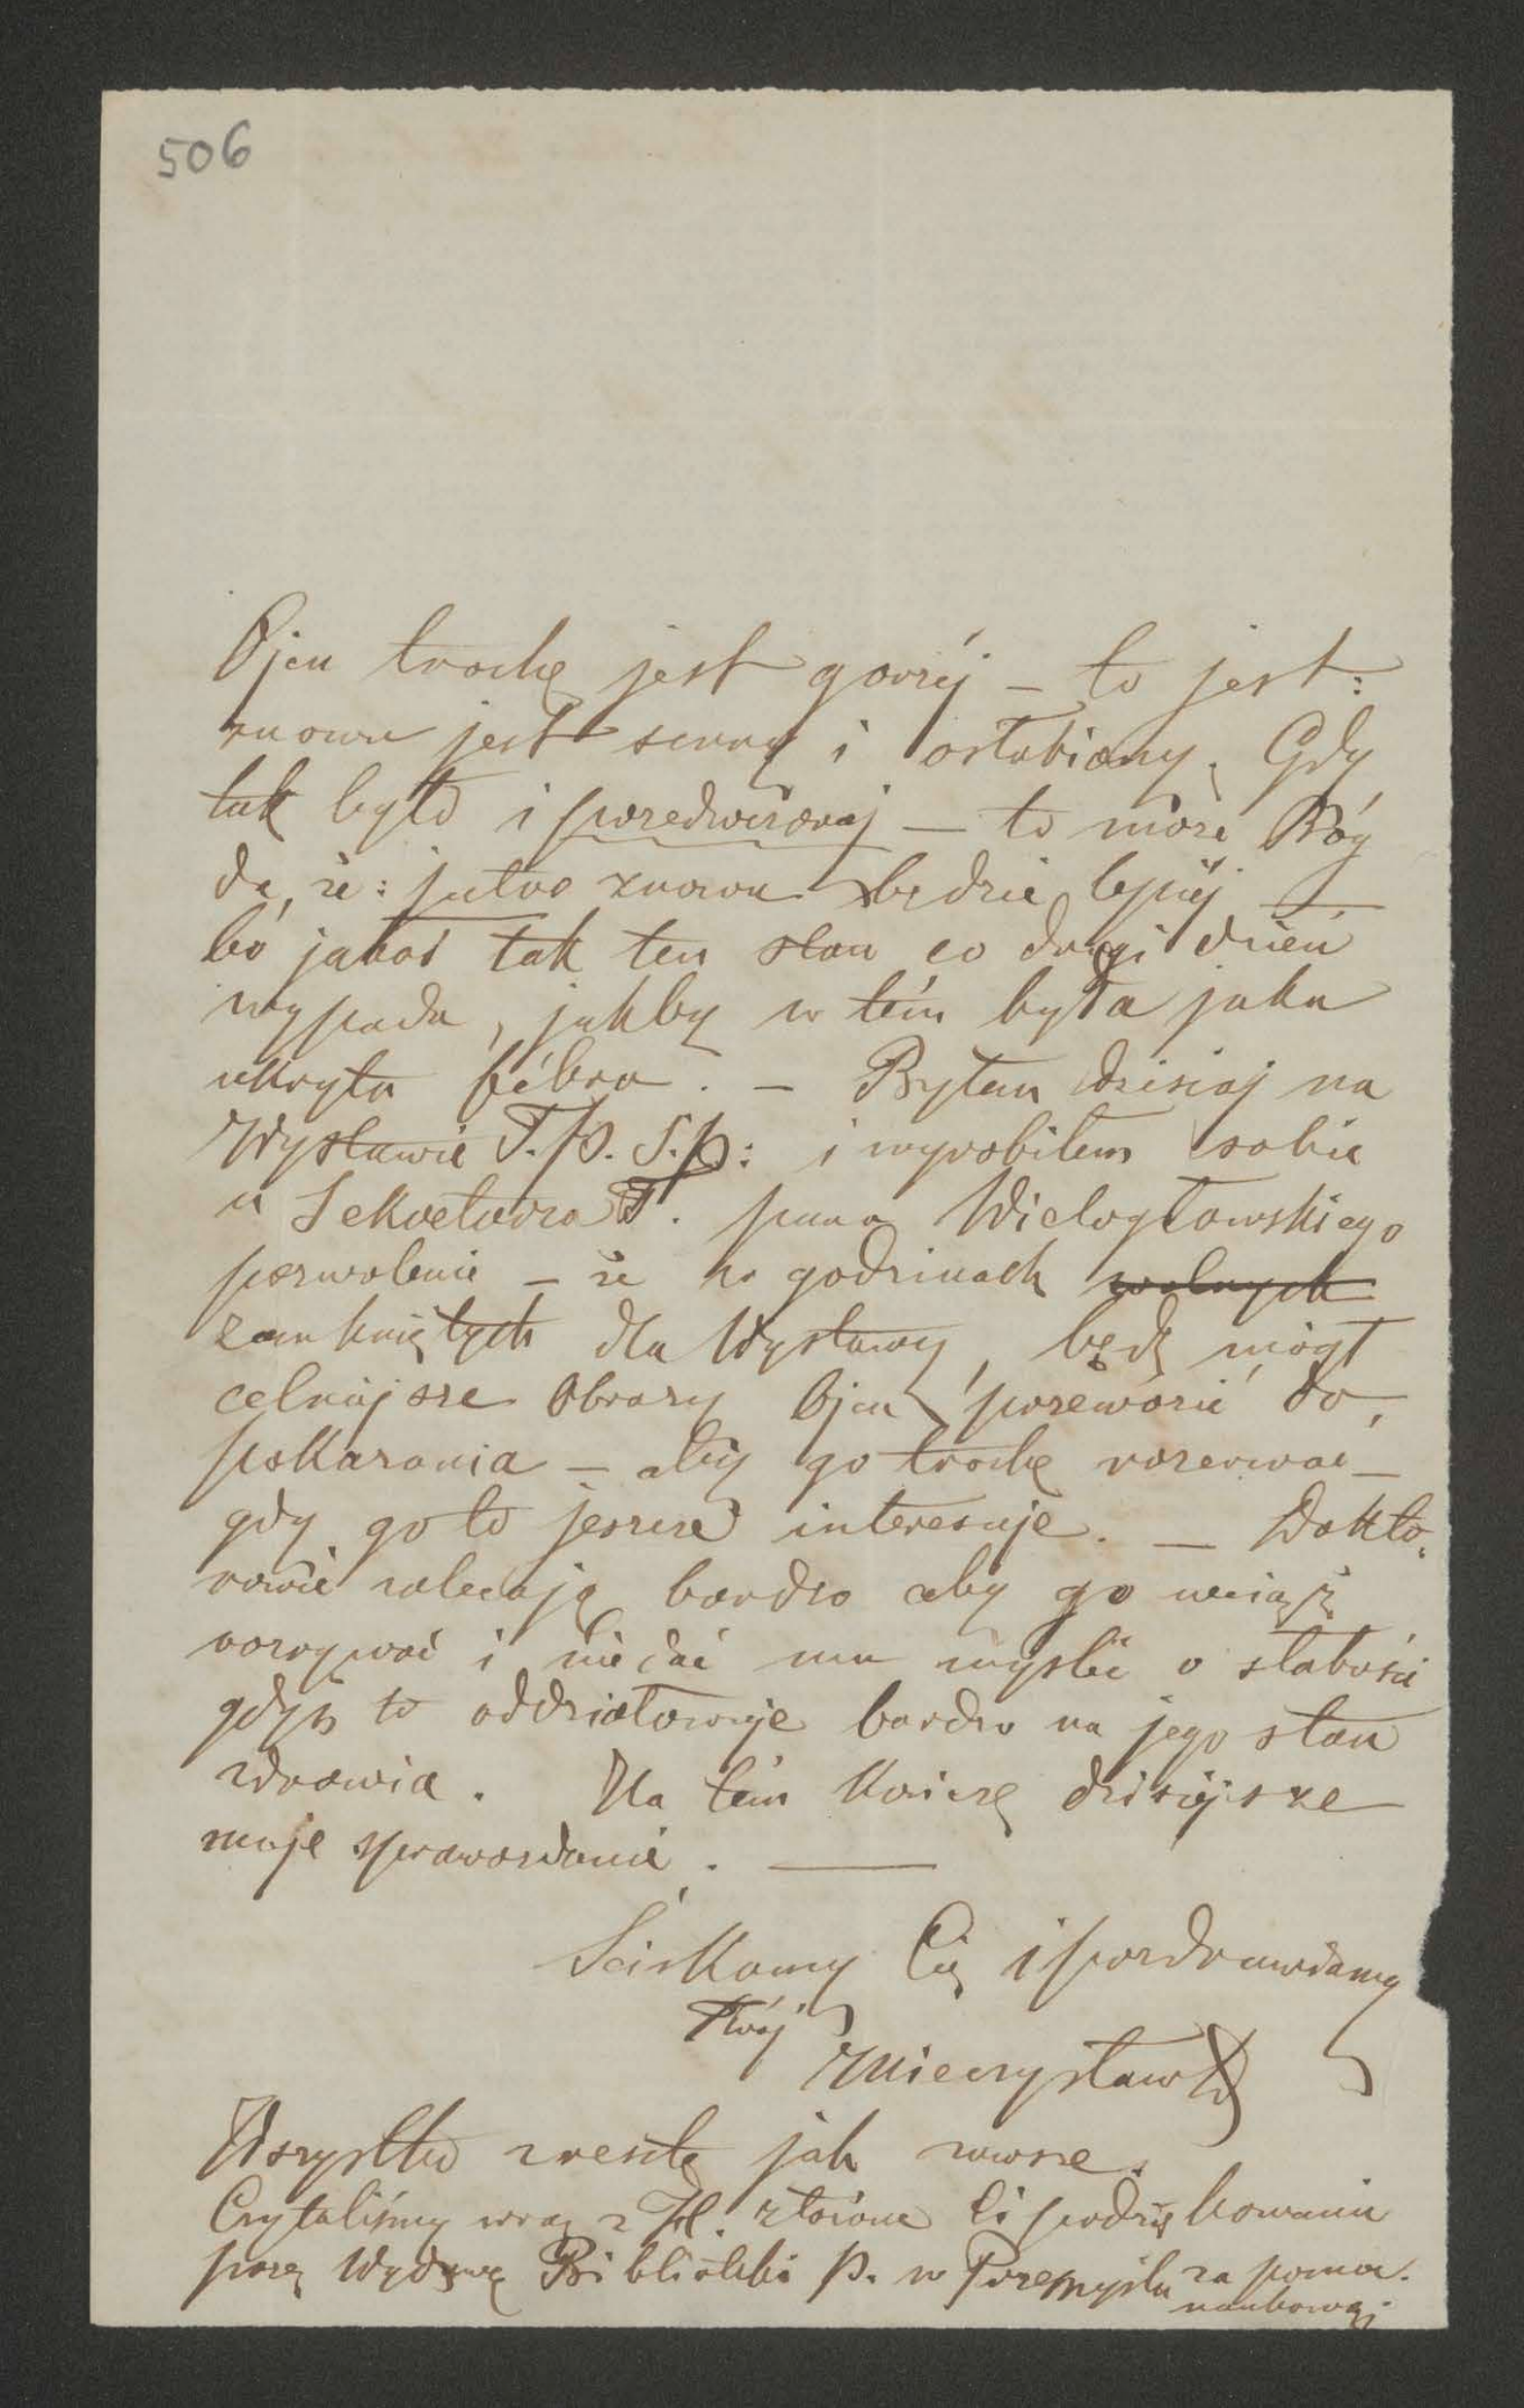 506
Ojcu trochę jest gorzéj – to jest:
znowu jest senny i osłabiony. Gdy
tak było i przedwczoraj — to może Bóg
da, że: jutro znowu będzie lepiéj —
bo jakoś tak ten stan co drugi dzień
wypada, jakby w tém była jaka
ukryta fébra. – Byłem dzisiaj na
Wystawie T.P.S.P.: i wyrobiłem sobie
u Sekretarza T. pana Wielogłowskiego
pozwolenie – że w godzinach wolnych
zamkniętych dla Wystawy, będę mógł
celniejsze obrazy Ojcu przewozić do
pokazania – aby go trochę rozerwać –
gdy go to jeszcze interesuje. — Dokto-
rowie zalecają bardzo aby go wciąż
rozrywać i nie dać mu myśleć o słabości
gdyż to oddziaływuje bardzo na jego stan
zdrowia. Na tém kończę dzisiejsze
moje sprawozdanie. —
Ściskamy Cię i pozdrawiamy
Twój
Mieczysław
Wszystko zresztą jak zawsze.
Czytaliśmy wraz z H. złożone Ci podziękowanie
przez Wydawcę Biblioteki P. w Przemyślu za pomoc
naukową.